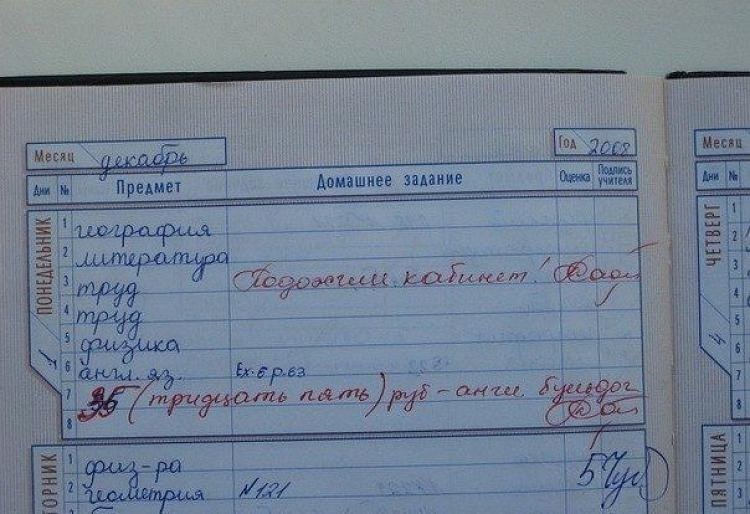 Месяц декабрь Год 2008
Дни № Предмет Домашнее задание Оценка Подпись учителя
ПОНЕДЕЛЬНИК 1
1 география
2 литература
3 труд Подожгли кабинет!
4 труд
5 физика
6 англ. яз. Ex.6 p.63
7 35 (тридцать пять) руб – англ. бульдог
8
ВТОРНИК
1 физ-ра
2 геометрия №121 5
Месяц
Дни №
ЧЕТВЕРГ 4
1
2
3
4
5
6
7
8
ПЯТНИЦА
1
2
3